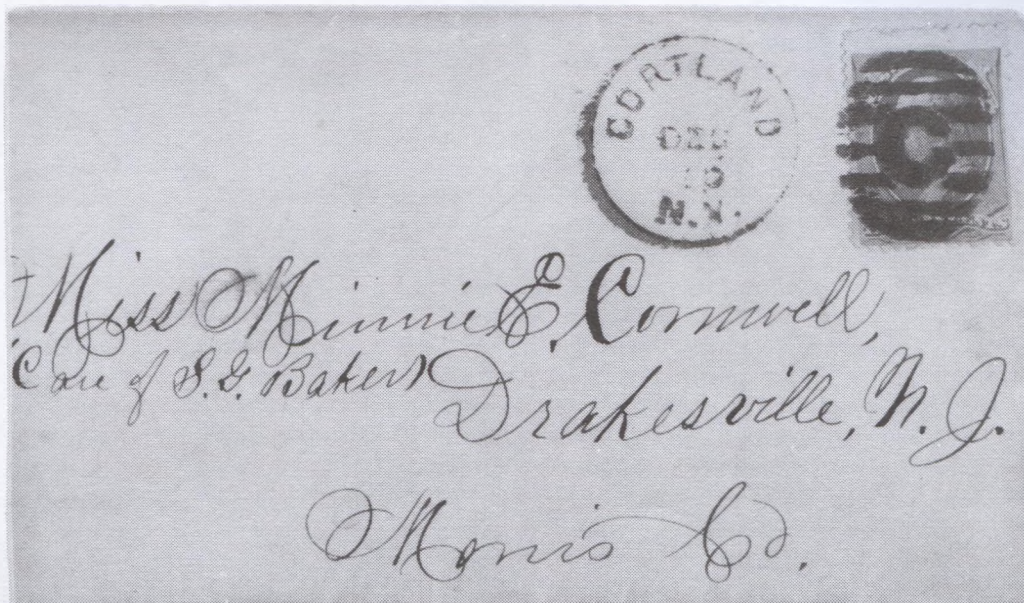 CORTLAND
DEC
19
N.Y.
C
Miss Minnie E. Cornwell,
Care of S. G. Baker
Drakesville, N. J.
Morris Co.